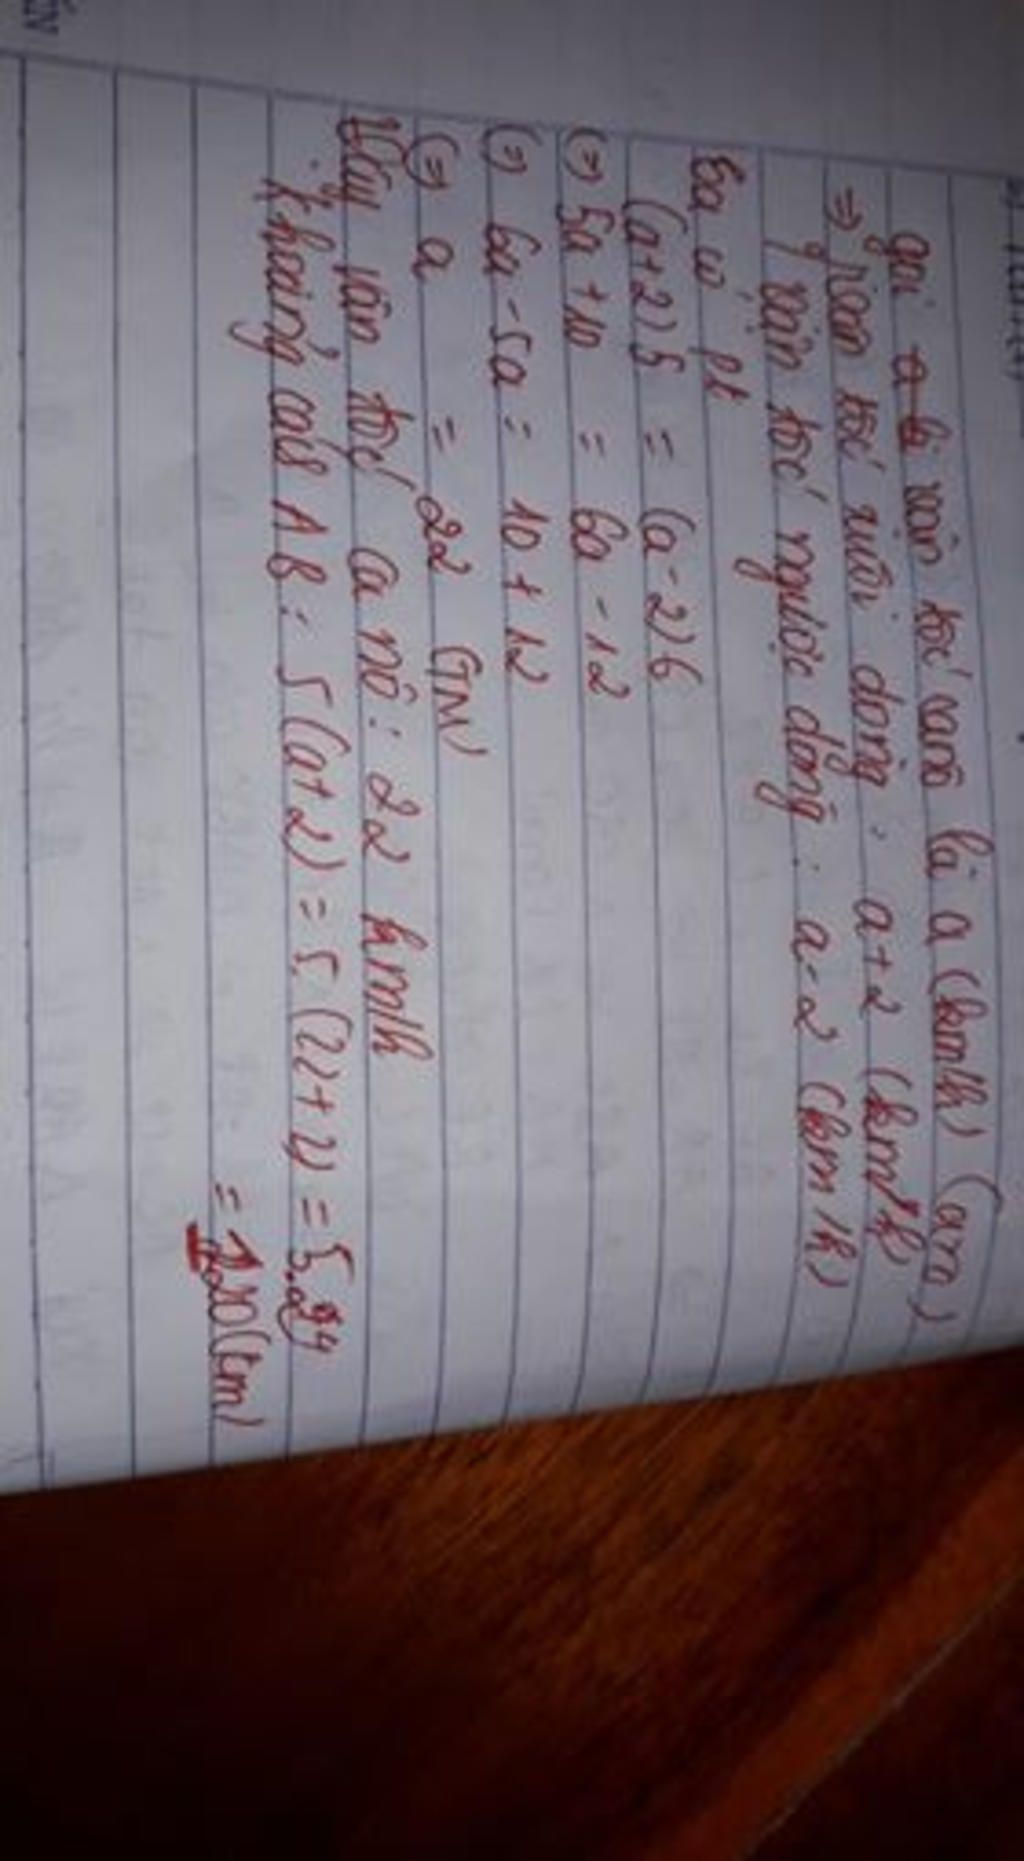 gọi a là vận tốc canô là a (km/h) (a>2)
=> vận tốc xuôi dòng : a+2 (km/h)
vận tốc ngược dòng : a-2 (km/h)
Ta có pt
(a+2)5 = (a-2)6
(=) 5a+10 = 6a-12
(=) 6a-5a = 10+12
(=) a = 22 (TM)
Vậy vận tốc ca nô : 22 km/h
khoảng cách AB : 5(a+2) = 5.(22+2) = 5.24
= 120(km)